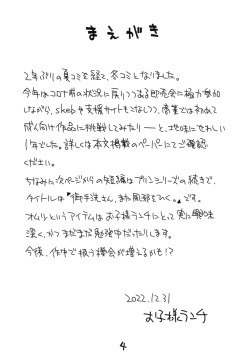 まえがき
2年ぶりの夏コミを経て、冬コミとなりました。
今年はコロナ前の状況に戻りつつある即売会に極力参加
しながら、skebや支援サイトもこなしつつ、商業では初めて
成人向け作品に挑戦してみたり—と、地味にせわしい
1年でした。詳しくは本文掲載のペーパーにてご確認
ください。
ちなみに次ページからの短編はプリンシリーズの続きで、
タイトルは『御手洗さん、また風邪をひく。』です。
オムツというアイテムはお子様ランチにとって実に興味
深く、かつまだまだ勉強中だったりします。
今後、作中で扱う機会が増えるかも!?
2022.12.31
お子様ランチ
4